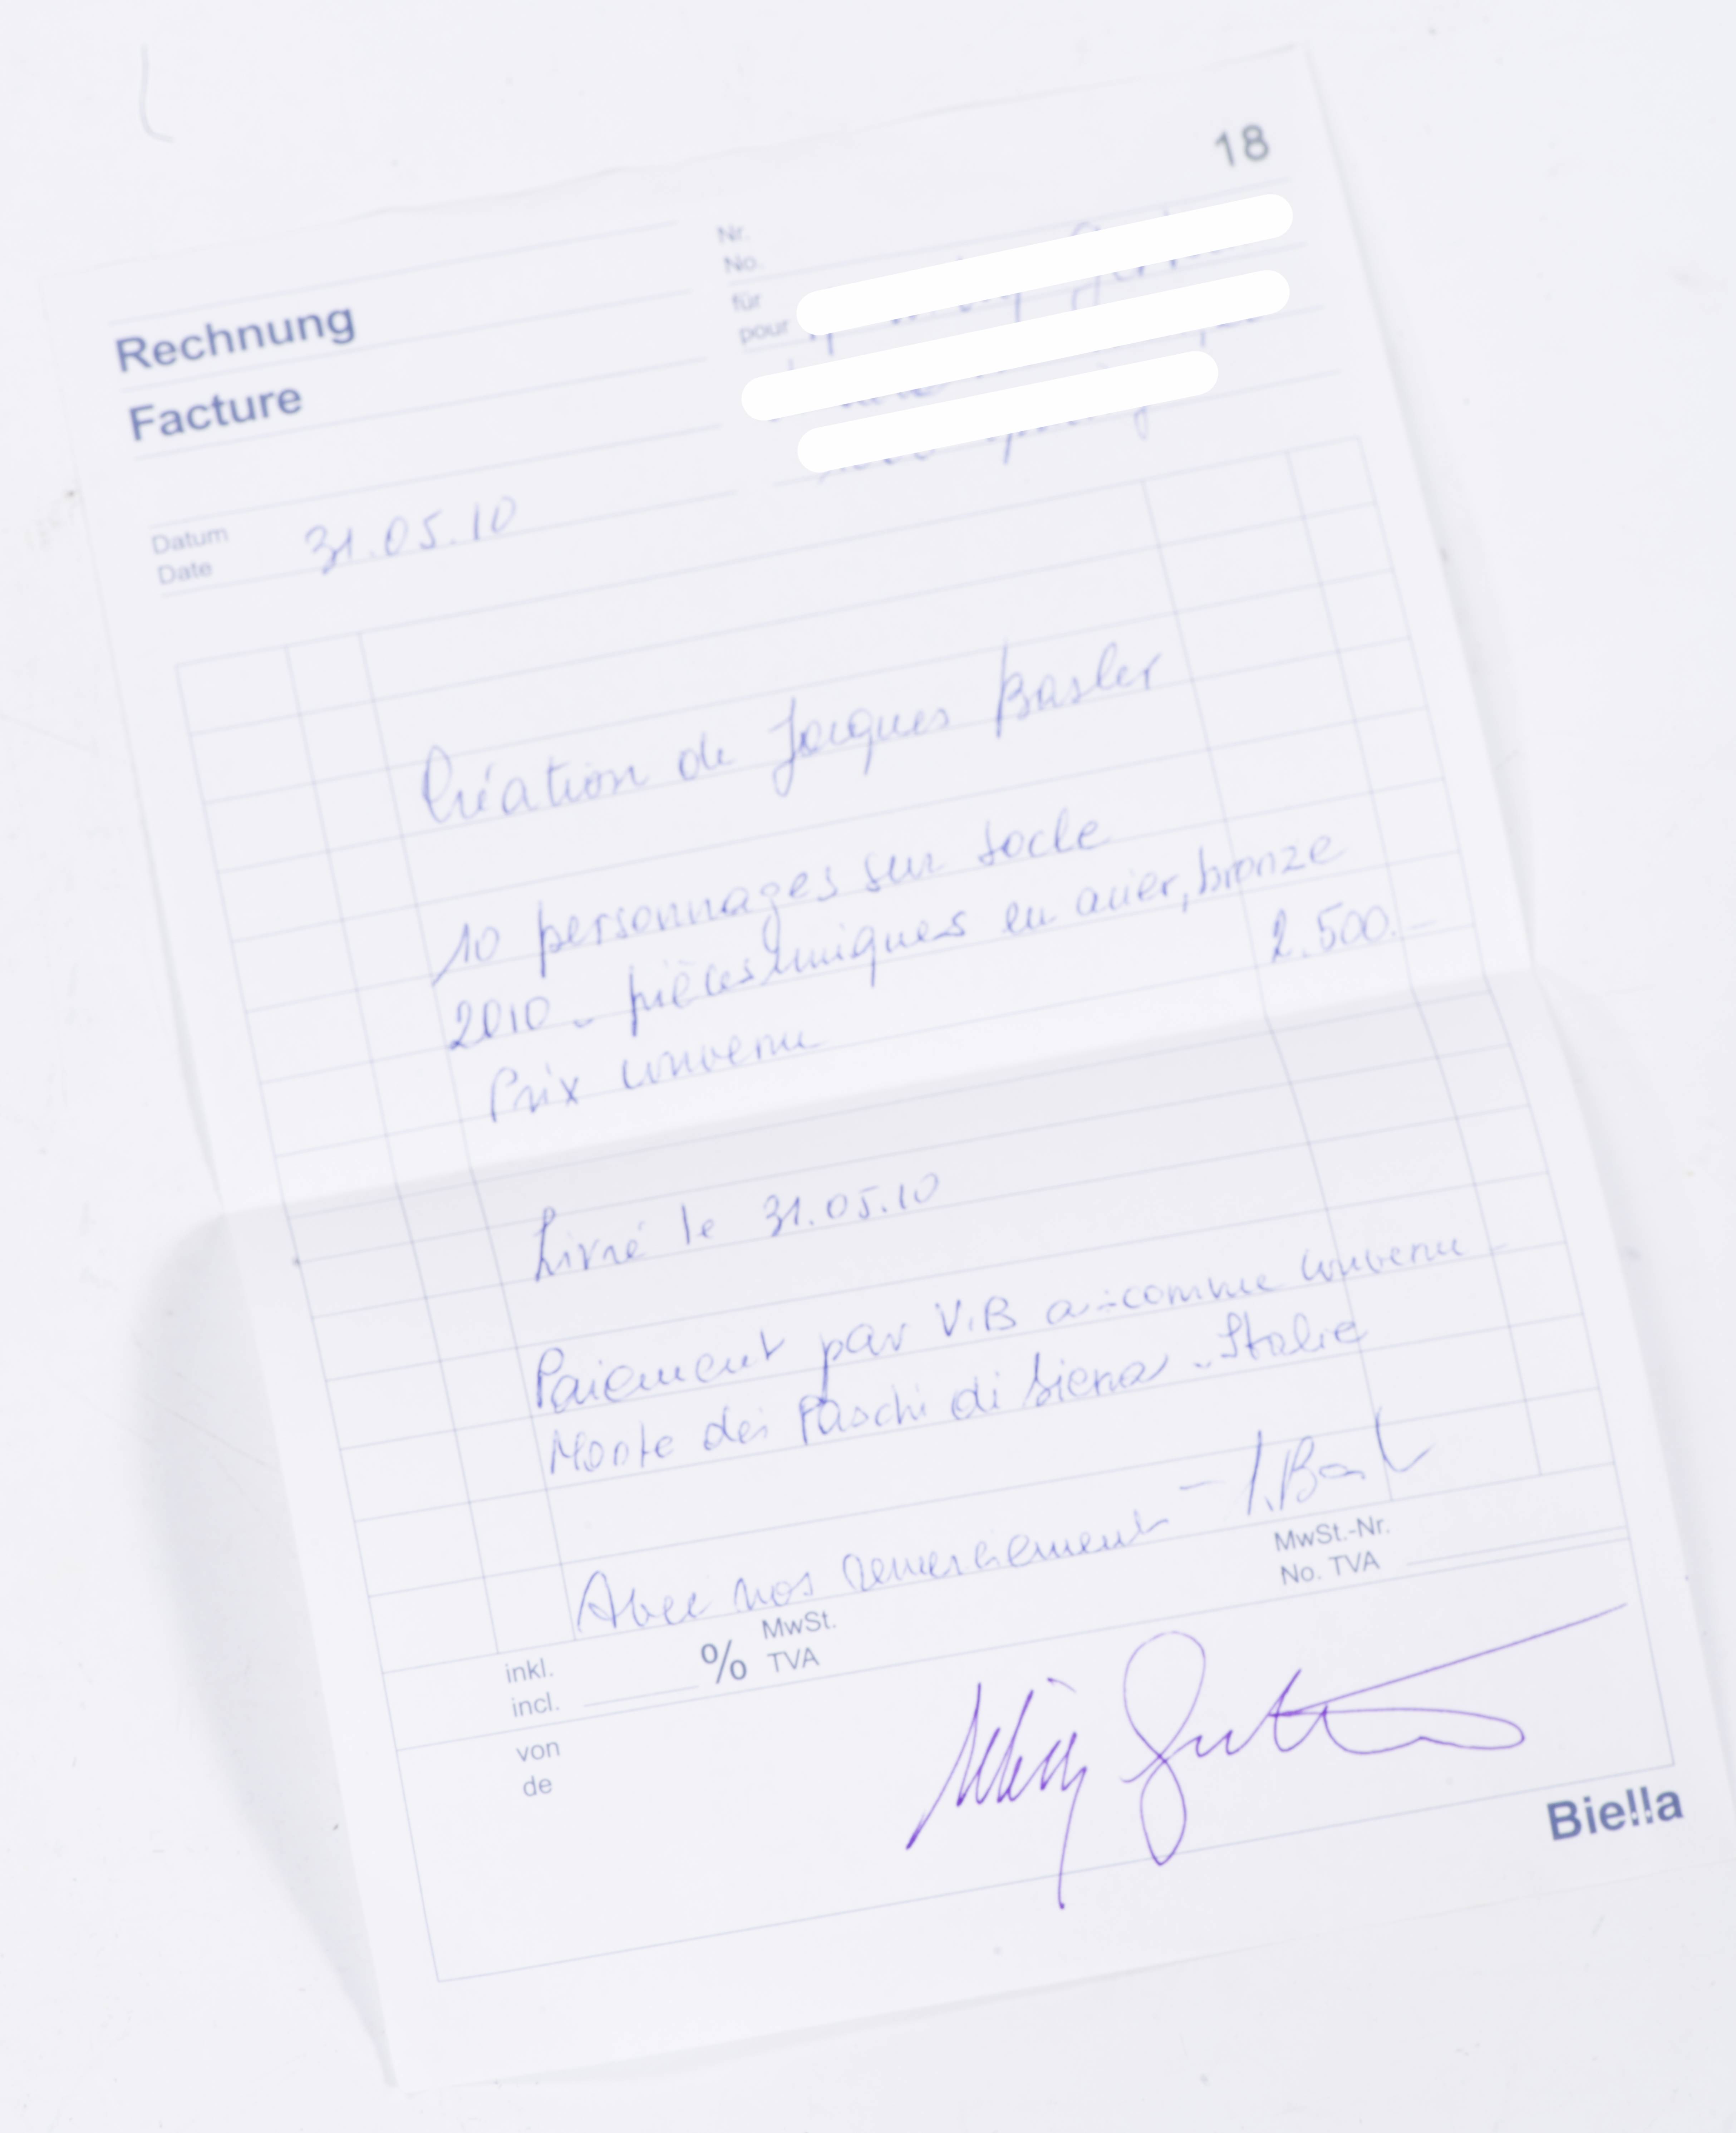 18
Nr.
No.
für
pour
Rechnung
Facture
Datum
Date
31.05.10
Création de Jacques Basler
10 personnages sur socle
2010 - pièces uniques en acier, bronze
2.500.-
Prix convenu
Livré le 31.05.10
Paiement par V.B comme convenu -
Monte dei Paschi di Siena - Italie
Avec nos remerciement -
MwSt.-Nr.
No. TVA
inkl.
incl.
%
MwSt.
TVA
von
de
Biella